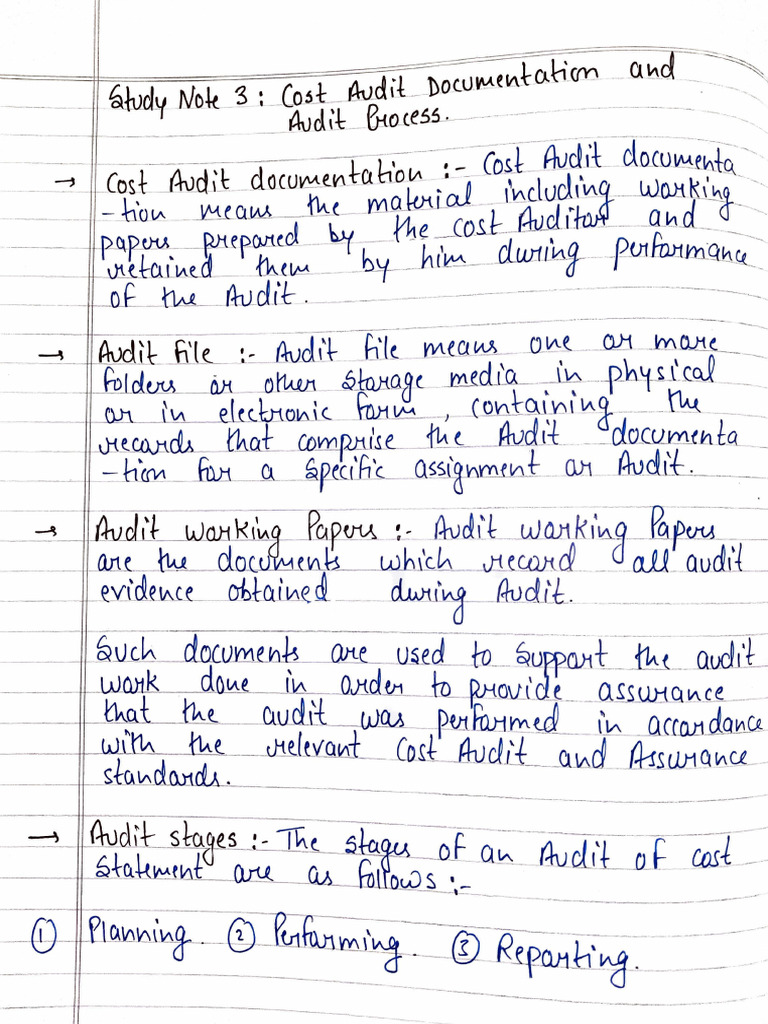 Study Note 3 : Cost Audit Documentation and
Audit Process.
→ Cost Audit documentation :- Cost Audit documenta
-tion means the material including working
papers prepared by the cost Auditor and
retained them by him during performance
of the Audit.
→ Audit file :- Audit file means one or more
folders or other storage media in physical
or in electronic form, containing the
records that comprise the Audit documenta
-tion for a specific assignment or Audit.
→ Audit working Papers :- Audit working Papers
are the documents which record all audit
evidence obtained during Audit.
Such documents are used to support the audit
work done in order to provide assurance
that the audit was performed in accordance
with the relevant Cost Audit and Assurance
standards.
→ Audit stages :- The stages of an Audit of cost
Statement are as follows :-
① Planning. ② Performing. ③ Reporting.